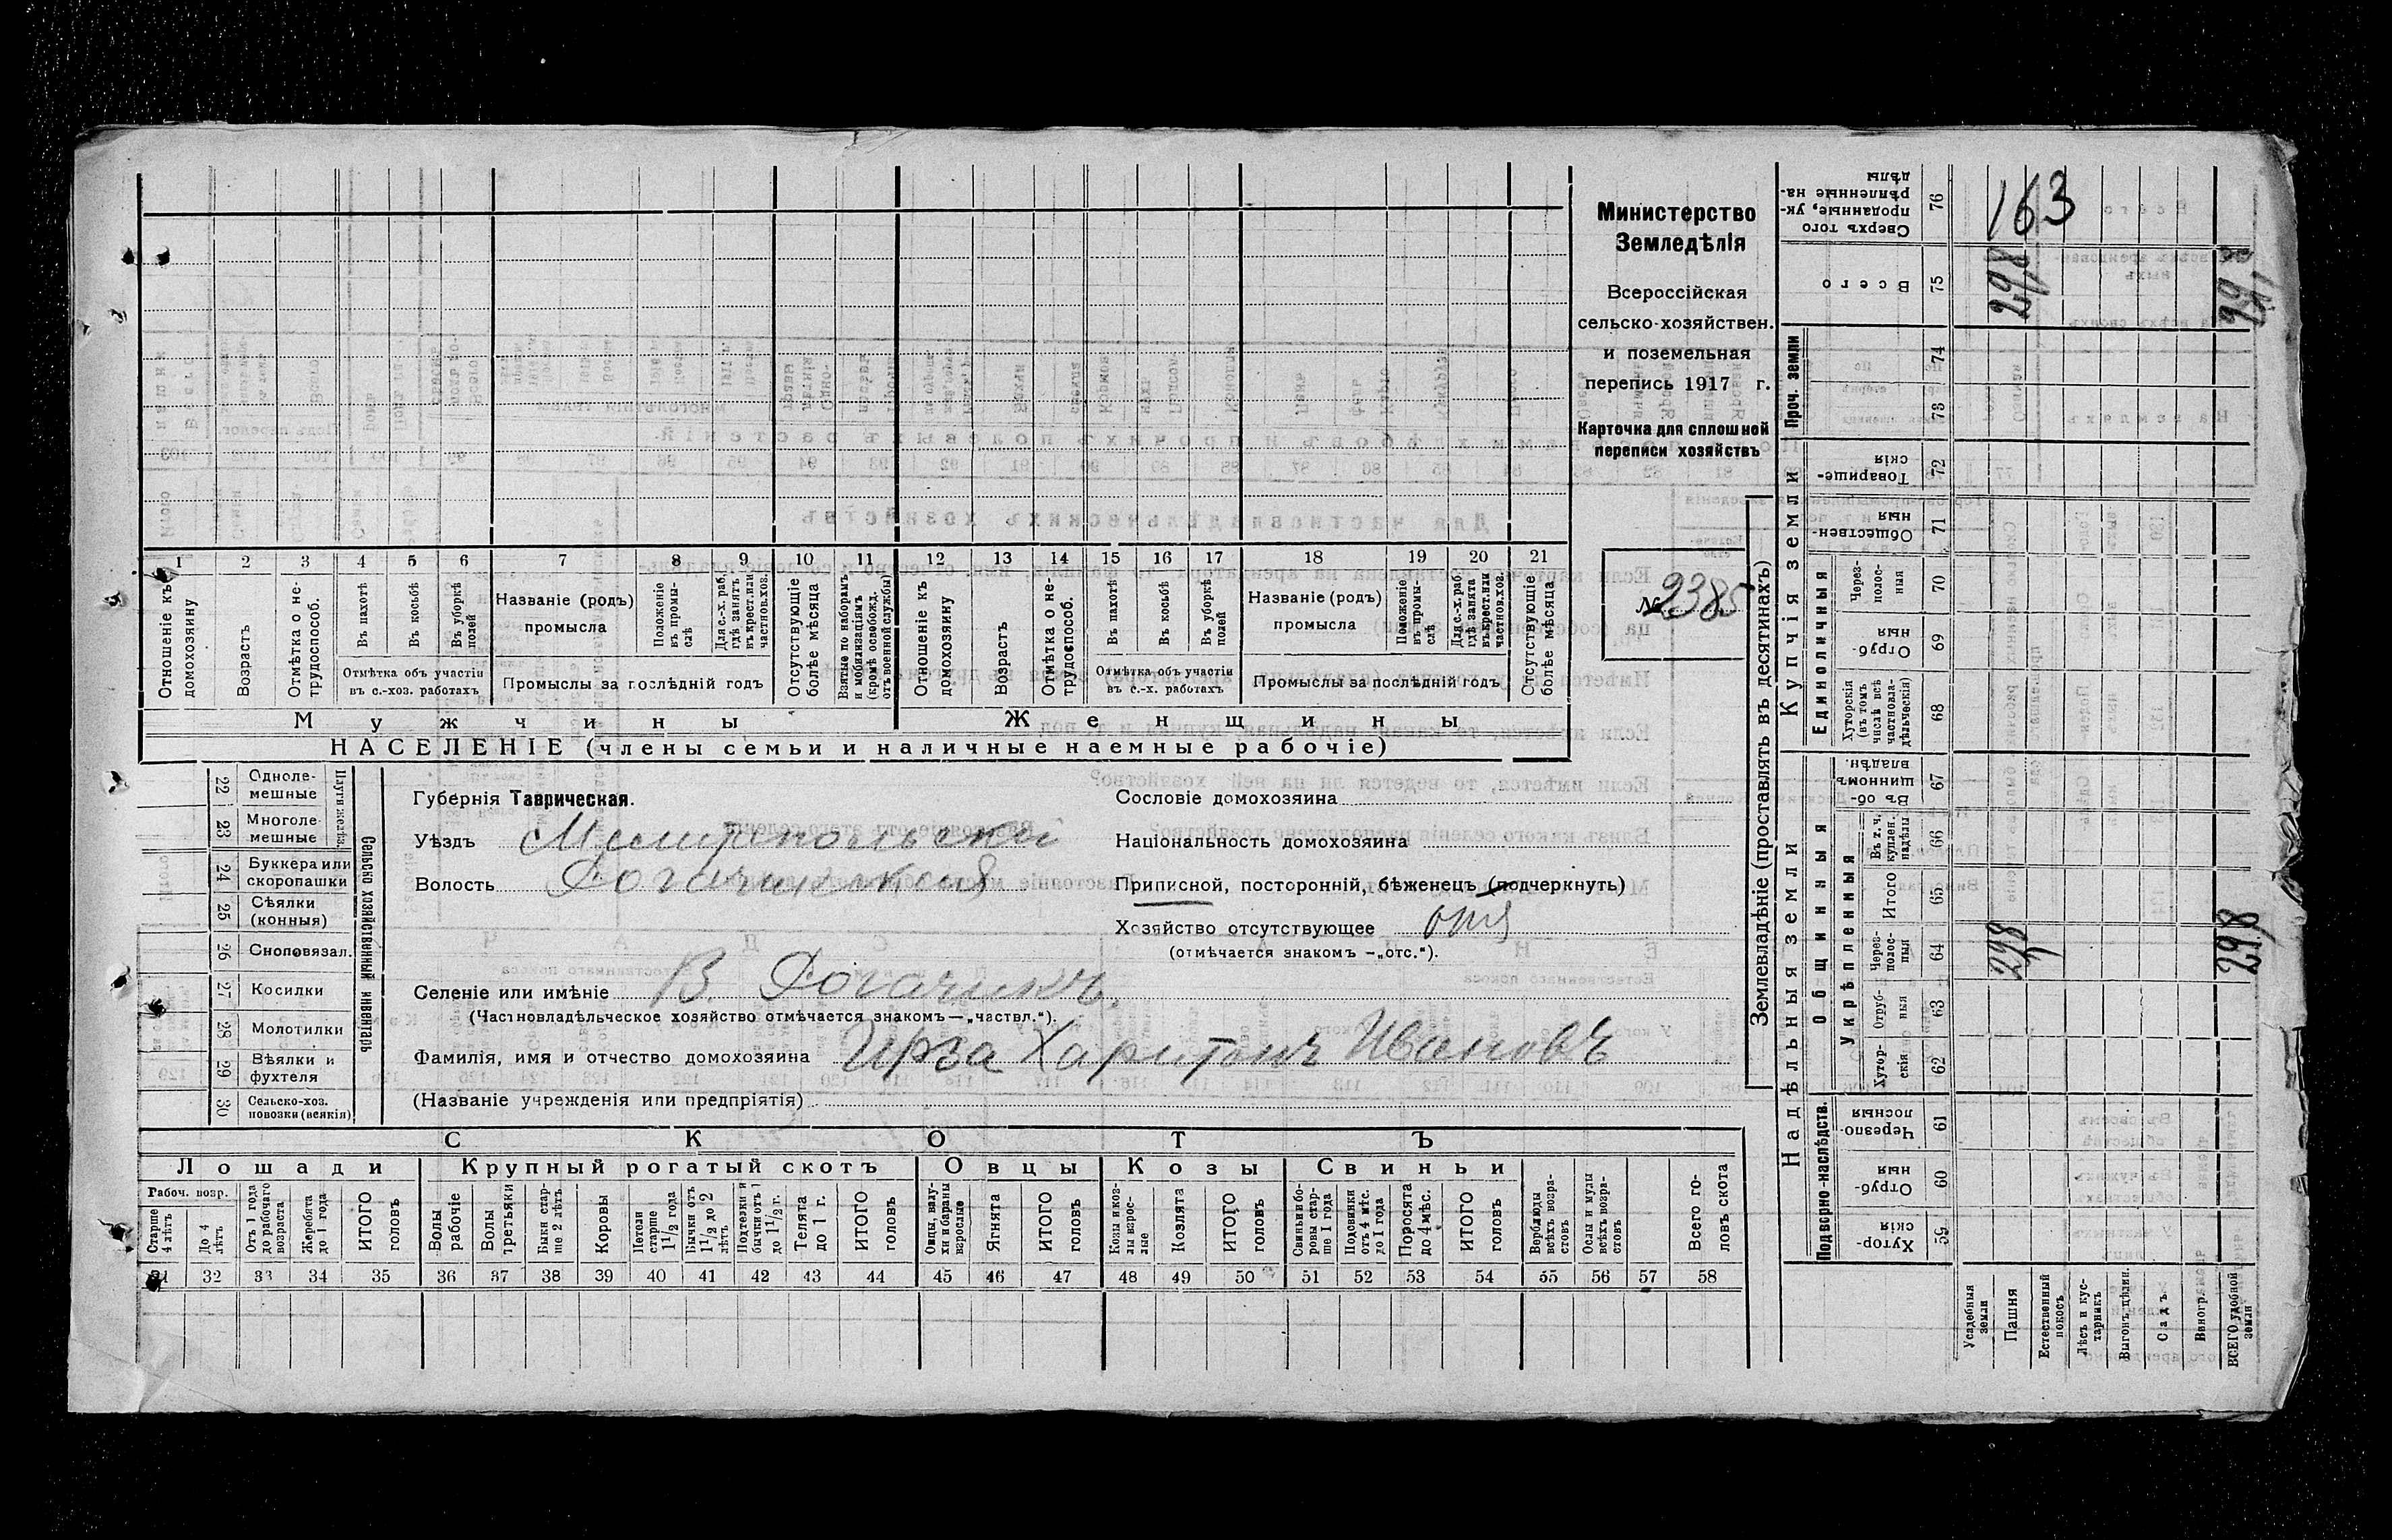 Министерство
Земледѣлія
Всероссійская
сельско-хозяйствен.
и поземельная
перепись 1917 г.
Карточка для сплошной
переписи хозяйствъ
№ 2385
1 2 3 4 5 6 7 8 9 10 11 12 13 14 15 16 17 18 19 20 21
Отношеніе къ домохозяину
Возрастъ
Отмѣтка о не-трудоспособ.
Въ пахотѣ
Въ косьбѣ
Въ уборкѣ полей
Отмѣтка объ участіи
въ с.-хоз. работахъ
Названіе (родъ)
промысла
Положеніе въ промы-слѣ
Для с.-х. раб. гдѣ занятъ въ крест. или частнов. хоз.
Промыслы за послѣдній годъ
Отсутствующіе болѣе мѣсяца
Взятые по наборамъ и мобилизаціямъ (кромѣ освобожд. отъ военной службы)
Отношеніе къ домохозяину
Возрастъ
Отмѣтка о не-трудоспособ.
Въ пахотѣ
Въ косьбѣ
Въ уборкѣ полей
Отмѣтка объ участіи
въ с.-х. работахъ
Названіе (родъ)
промысла
Положеніе въ промы-слѣ
Для с.-х. раб. гдѣ занята въ крест. или частнов. хоз.
Промыслы за послѣдній годъ
Отсутствующіе болѣе мѣсяца
Мужчины
Женщины
НАСЕЛЕНІЕ (члены семьи и наличные наемные рабочіе)
22 Однолемешные
23 Многолемешные
Плуги желѣз.
24 Буккера или скоропашки
25 Сѣялки (конныя)
26 Сноповязал.
27 Косилки
28 Молотилки
29 Вѣялки и фухтеля
30 Сельско-хоз. повозки (всякія)
Сельско хозяйственный инвентарь
Губернія Таврическая.
Уѣздъ Мелитопольскій
Волость Рогачикская
Сословіе домохозяина
Національность домохозяина
Приписной, посторонній, бѣженецъ (подчеркнуть)
Хозяйство отсутствующее
(отмѣчается знакомъ —„отс.“).
Селеніе или имѣніе В. Рогачикъ.
(Частновладѣльческое хозяйство отмѣчается знакомъ—„частвл.“).
Фамилія, имя и отчество домохозяина Ирза Харитонъ Ивановъ
(Названіе учрежденія или предпріятія)
СКОТЪ
Лошади
Крупный рогатый скотъ
Овцы
Козы
Свиньи
Рабоч. возр.
Старше 4 лѣтъ
До 4 лѣтъ
Отъ 1 года до рабочаго возраста
Жеребята до 1 года
ИТОГО головъ
Волы рабочіе
Волы третьяки
Быки старше 2 лѣтъ
Коровы
Нетели старше 1 1/2 года
Бычки отъ 1 1/2 до 2 лѣтъ
Подтелки и бычки отъ 1 до 1 1/2 г.
Телята до 1 г.
ИТОГО головъ
Овцы, валухи и бараны взрослые
Ягнята
ИТОГО головъ
Козы и козлы взрослые
Козлята
ИТОГО головъ
Свиньи и боровы старше 1 года
Подсвинки отъ 4 мѣс. до 1 года
Поросята до 4 мѣс.
ИТОГО головъ
Верблюды всѣхъ возрастовъ
Ослы и мулы всѣхъ возрастовъ
Всего головъ скота
31 32 33 34 35 36 37 38 39 40 41 42 43 44 45 46 47 48 49 50 51 52 53 54 55 56 57 58
Землевладѣніе (проставлять въ десятинахъ)
Надѣльныя земли
Купчія земли
Проч. земли
Подворно-наслѣдств.
Общинныя
Укрѣпленныя
Единоличныя
Хуторскія 59
Отрубныя 60
Черезполосныя 61
Хуторскія 62
Отрубныя 63
Черезполосныя 64
Итого 65
Въ т. ч. куплен. надѣлы 66
Въ общинномъ владѣн. 67
Хуторскія (въ томъ числѣ всѣ частновладѣльческія) 68
Отрубныя 69
Черезполосныя 70
Общественныя 71
Товарищескія 72
73
74
Всего 75
Сверхъ того проданные, укрѣпленные надѣлы 76
Усадебныя земли
Пашня
Естественный покосъ
Лѣсъ и кустарникъ
Выгонъ, цѣлин.
Садъ
Виногр.
ВСЕГО удобной земли
298
298
298
298
163